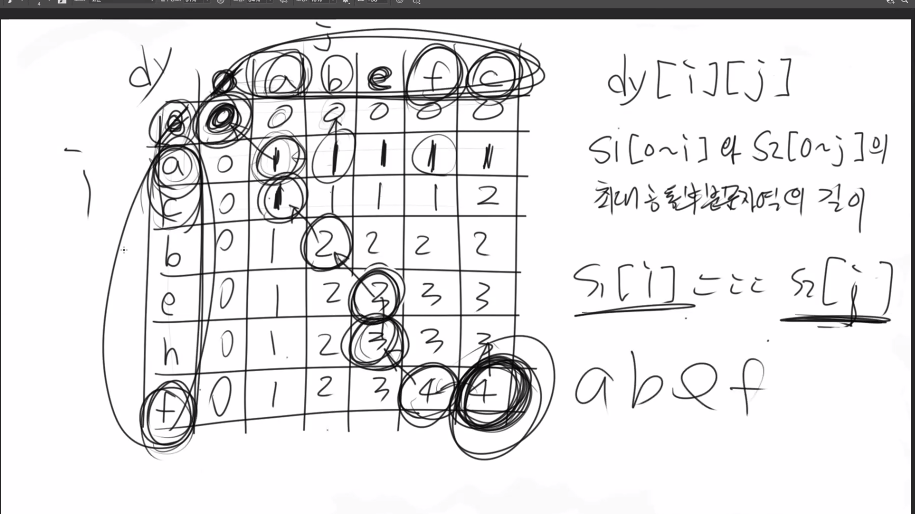 j
dy
0 a b e f c
0 0 0 0 0 0 0
i
a 0 1 1 1 1 1
c 0 1 1 1 1 2
b 0 1 2 2 2 2
e 0 1 2 3 3 3
h 0 1 2 3 3 3
f 0 1 2 3 4 4
dy[i][j]
S1[0~i]와 S2[0~j]의
최대 공통부분문자역의 길이
S1[i] === S2[j]
abef